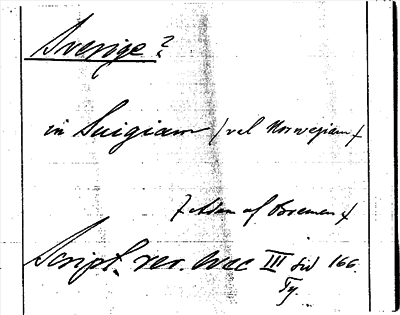 Sverige?
in Suigiam /vel Norwegiam/
/Adam af Bremen/
Script. rer. svec III sid 166.
Ty.